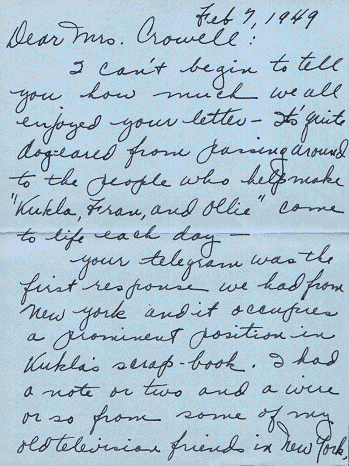 Feb 7, 1949
Dear Mrs. Crowell:
I can't begin to tell
you how much we all
enjoyed your letter - It's quite
dogeared from passing around
to the people who help make
"Kukla, Fran, and Ollie" come
to life each day -
your telegram was the
first response we had from
New York and it occupies
a prominent position in
Kukla's scrap-book. I had
a note or two and a wire
or so from some of my
old television friends in New York,